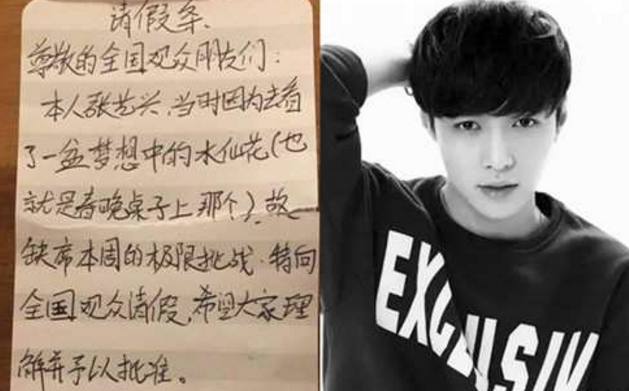 请假条.
尊敬的全国观众朋友们:
本人张艺兴,当时因为去看
了一盆梦想中的水仙花(也
就是春晚桌子上那个).故
缺席本周的极限挑战.特向
全国观众请假,希望大家理
解并予以批准。
EXCLUSIV